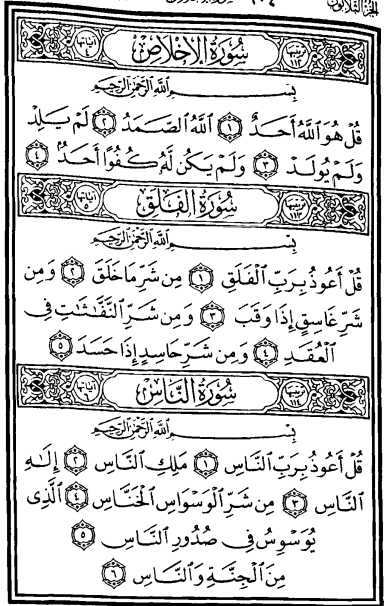 الجزء الثلاثون
٦٠٤
سُورَةُ الإِخْلَاصِ
بِسْمِ اللَّهِ الرَّحْمَٰنِ الرَّحِيمِ
قُلْ هُوَ اللَّهُ أَحَدٌ ١ اللَّهُ الصَّمَدُ ٢ لَمْ يَلِدْ
وَلَمْ يُولَدْ ٣ وَلَمْ يَكُن لَّهُ كُفُوًا أَحَدٌ ٤
سُورَةُ الفَلَقِ
بِسْمِ اللَّهِ الرَّحْمَٰنِ الرَّحِيمِ
قُلْ أَعُوذُ بِرَبِّ الْفَلَقِ ١ مِن شَرِّ مَا خَلَقَ ٢ وَمِن
شَرِّ غَاسِقٍ إِذَا وَقَبَ ٣ وَمِن شَرِّ النَّفَّاثَاتِ فِي
الْعُقَدِ ٤ وَمِن شَرِّ حَاسِدٍ إِذَا حَسَدَ ٥
سُورَةُ النَّاسِ
بِسْمِ اللَّهِ الرَّحْمَٰنِ الرَّحِيمِ
قُلْ أَعُوذُ بِرَبِّ النَّاسِ ١ مَلِكِ النَّاسِ ٢ إِلَٰهِ
النَّاسِ ٣ مِن شَرِّ الْوَسْوَاسِ الْخَنَّاسِ ٤ الَّذِي
يُوَسْوِسُ فِي صُدُورِ النَّاسِ ٥
مِنَ الْجِنَّةِ وَالنَّاسِ ٦